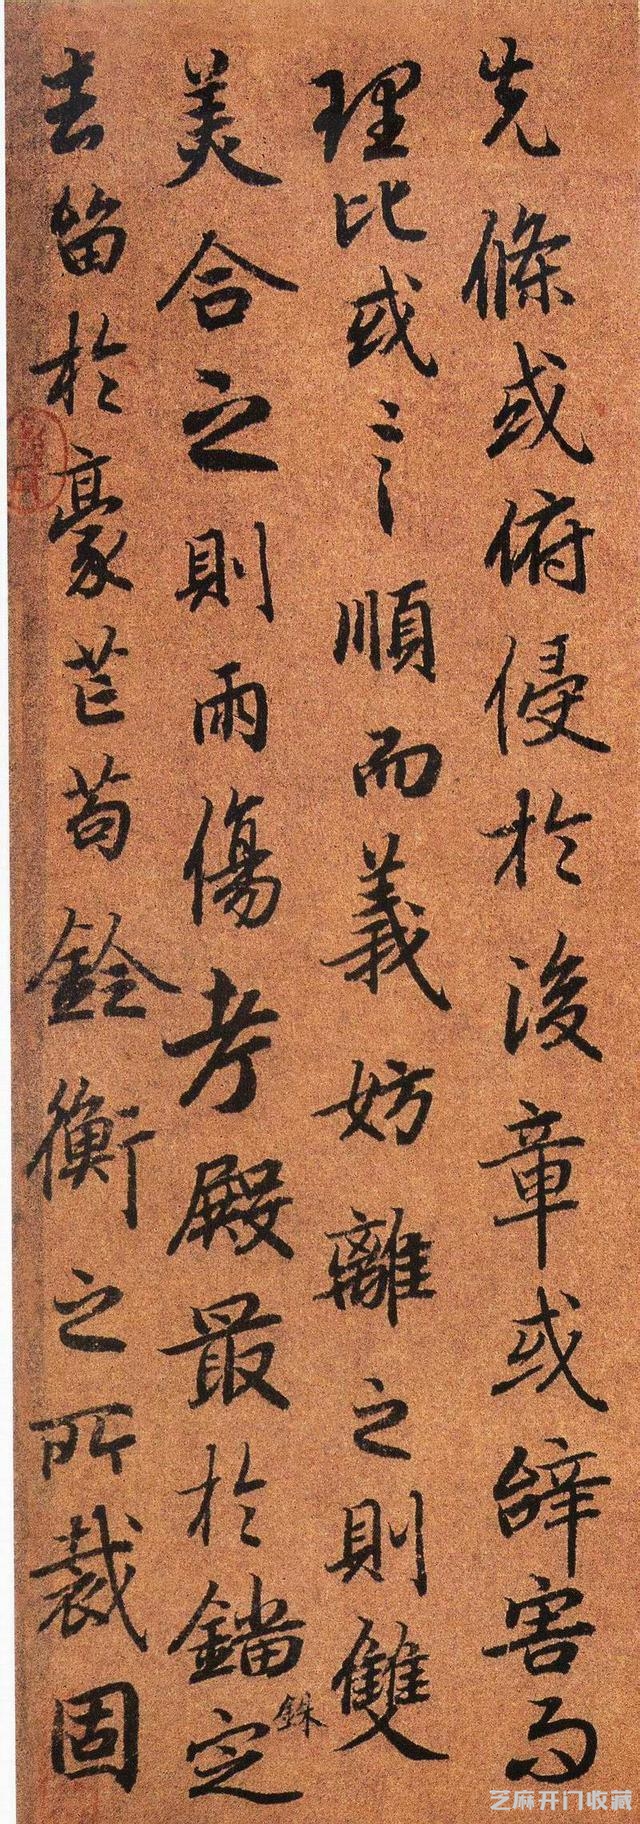 先條或俯侵於後章或辝害而
理比或言順而義妨離之則雙
美合之則兩傷考殿最於錙銖定
去留於豪芒苟銓衡之所裁固
芝麻开门收藏